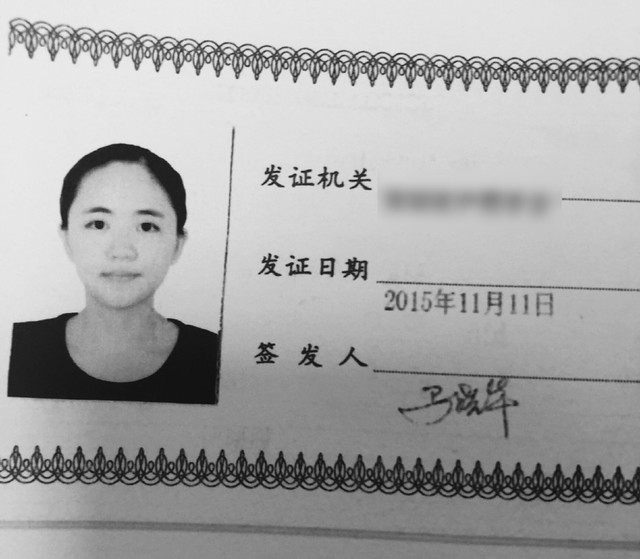 发证机关
发证日期
2015年11月11日
签发人